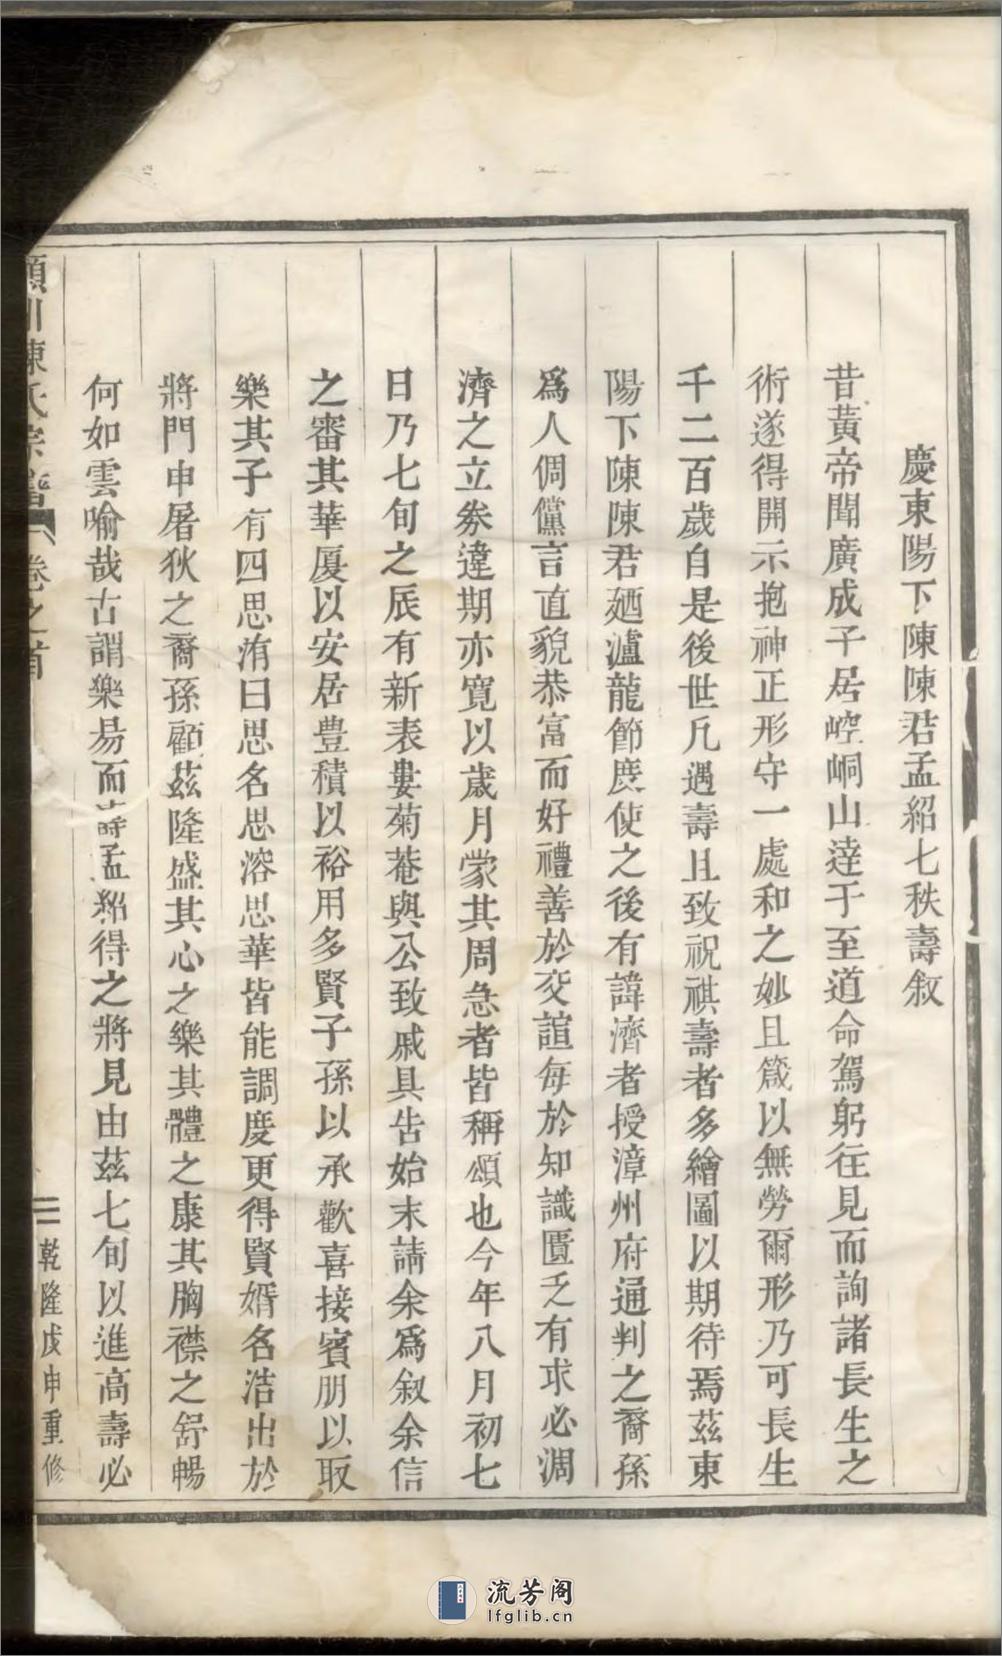 慶東陽下陳陳君孟紹七秩壽叙
昔黃帝聞廣成子居崆峒山達于至道命駕躬往見而詢諸長生之
術遂得開示抱神正形守一處和之妙且箴以無勞爾形乃可長生
千二百歲自是後世凡遇壽旦致祝祺壽者多繪圖以期待焉茲東
陽下陳陳君廼瀘龍節度使之後有諱濟者授漳州府通判之裔孫
爲人倜儻言直貌恭富而好禮善於交誼每於知識匱乏有求必凋
濟之立券違期亦寬以歲月蒙其周急者皆稱頌也今年八月初七
日乃七旬之辰有新表婁菊菴與公致戚具告始末請余爲叙余信
之審其華厦以安居豊積以裕用多賢子孫以承歡喜接賓朋以取
樂其子有四思洧曰思名思溶思華皆能調度更得賢婿名浩出於
將門申屠狄之裔孫顧茲隆盛其心之樂其體之康其胸襟之舒暢
何如雲喻哉古謂樂易而壽孟紹得之將見由茲七旬以進高壽必
潁川陳氏宗譜 卷之首 三 乾隆戊申重修
流芳阁
lfglib.cn